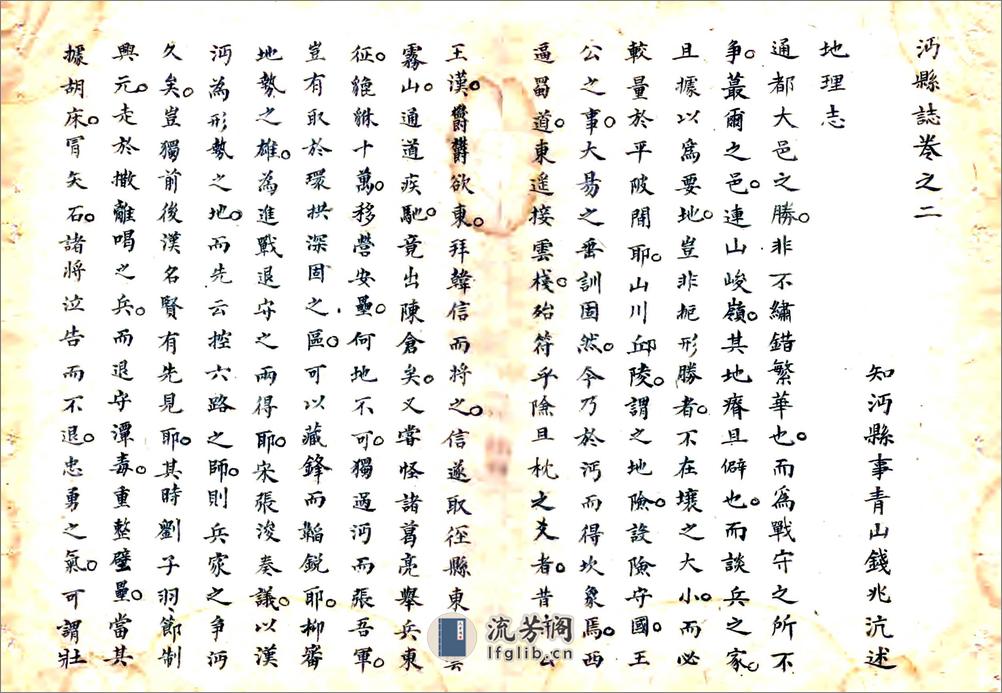 沔縣誌卷之二
知沔縣事青山錢兆沆述
地理志
通都大邑之勝非不繡錯繁華也而爲戰守之所不
争蕞爾之邑連山峻嶺其地瘠且僻也而談兵之家
且據以爲要地豈非扼形勝者不在壤之大小而必
較量於平陂間耶山川邱陵謂之地險設險守國王
公之事大易之垂訓固然今乃於沔而得坎象焉西
逼蜀道東遥接雲棧殆符乎險且枕之爻者昔
王漢欝欝欲東拜韓信而将之信遂取径縣東
霧山通道疾馳竟出陳倉矣又嘗怪諸葛亮舉兵東
征貔貅十萬移營安壘何地不可獨過沔而張吾軍
豈有取於環拱深固之區可以藏鋒而韜鋭耶柳審
地勢之雄為進戰退守之兩得耶宋張浚奏議以漢
沔為形勢之地而先云控六路之師則兵家之争沔
久矣豈獨前後漢名賢有先見耶其時劉子羽節制
興元走於撒離喝之兵而退守潭毒重整壁壘當其
據胡床冒矢石諸将泣告而不退忠勇之氣可謂壯
流芳阁
lfglib.cn